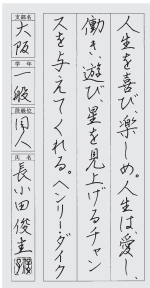 人生を喜び、楽しめ。人生は、愛し、
働き、遊び、星を見上げるチャン
スを与えてくれる。ヘンリーダイク
支部名 大阪
学年 一般
段級位 同人
氏名 長小田俊圭